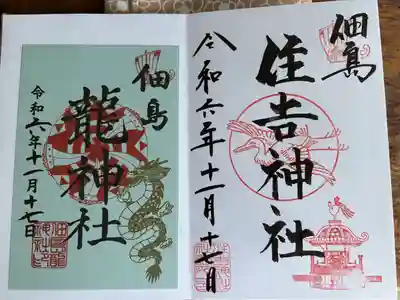 佃島
住吉神社
令和六年十一月十七日
佃島
龍神社
令和六年十一月十七日